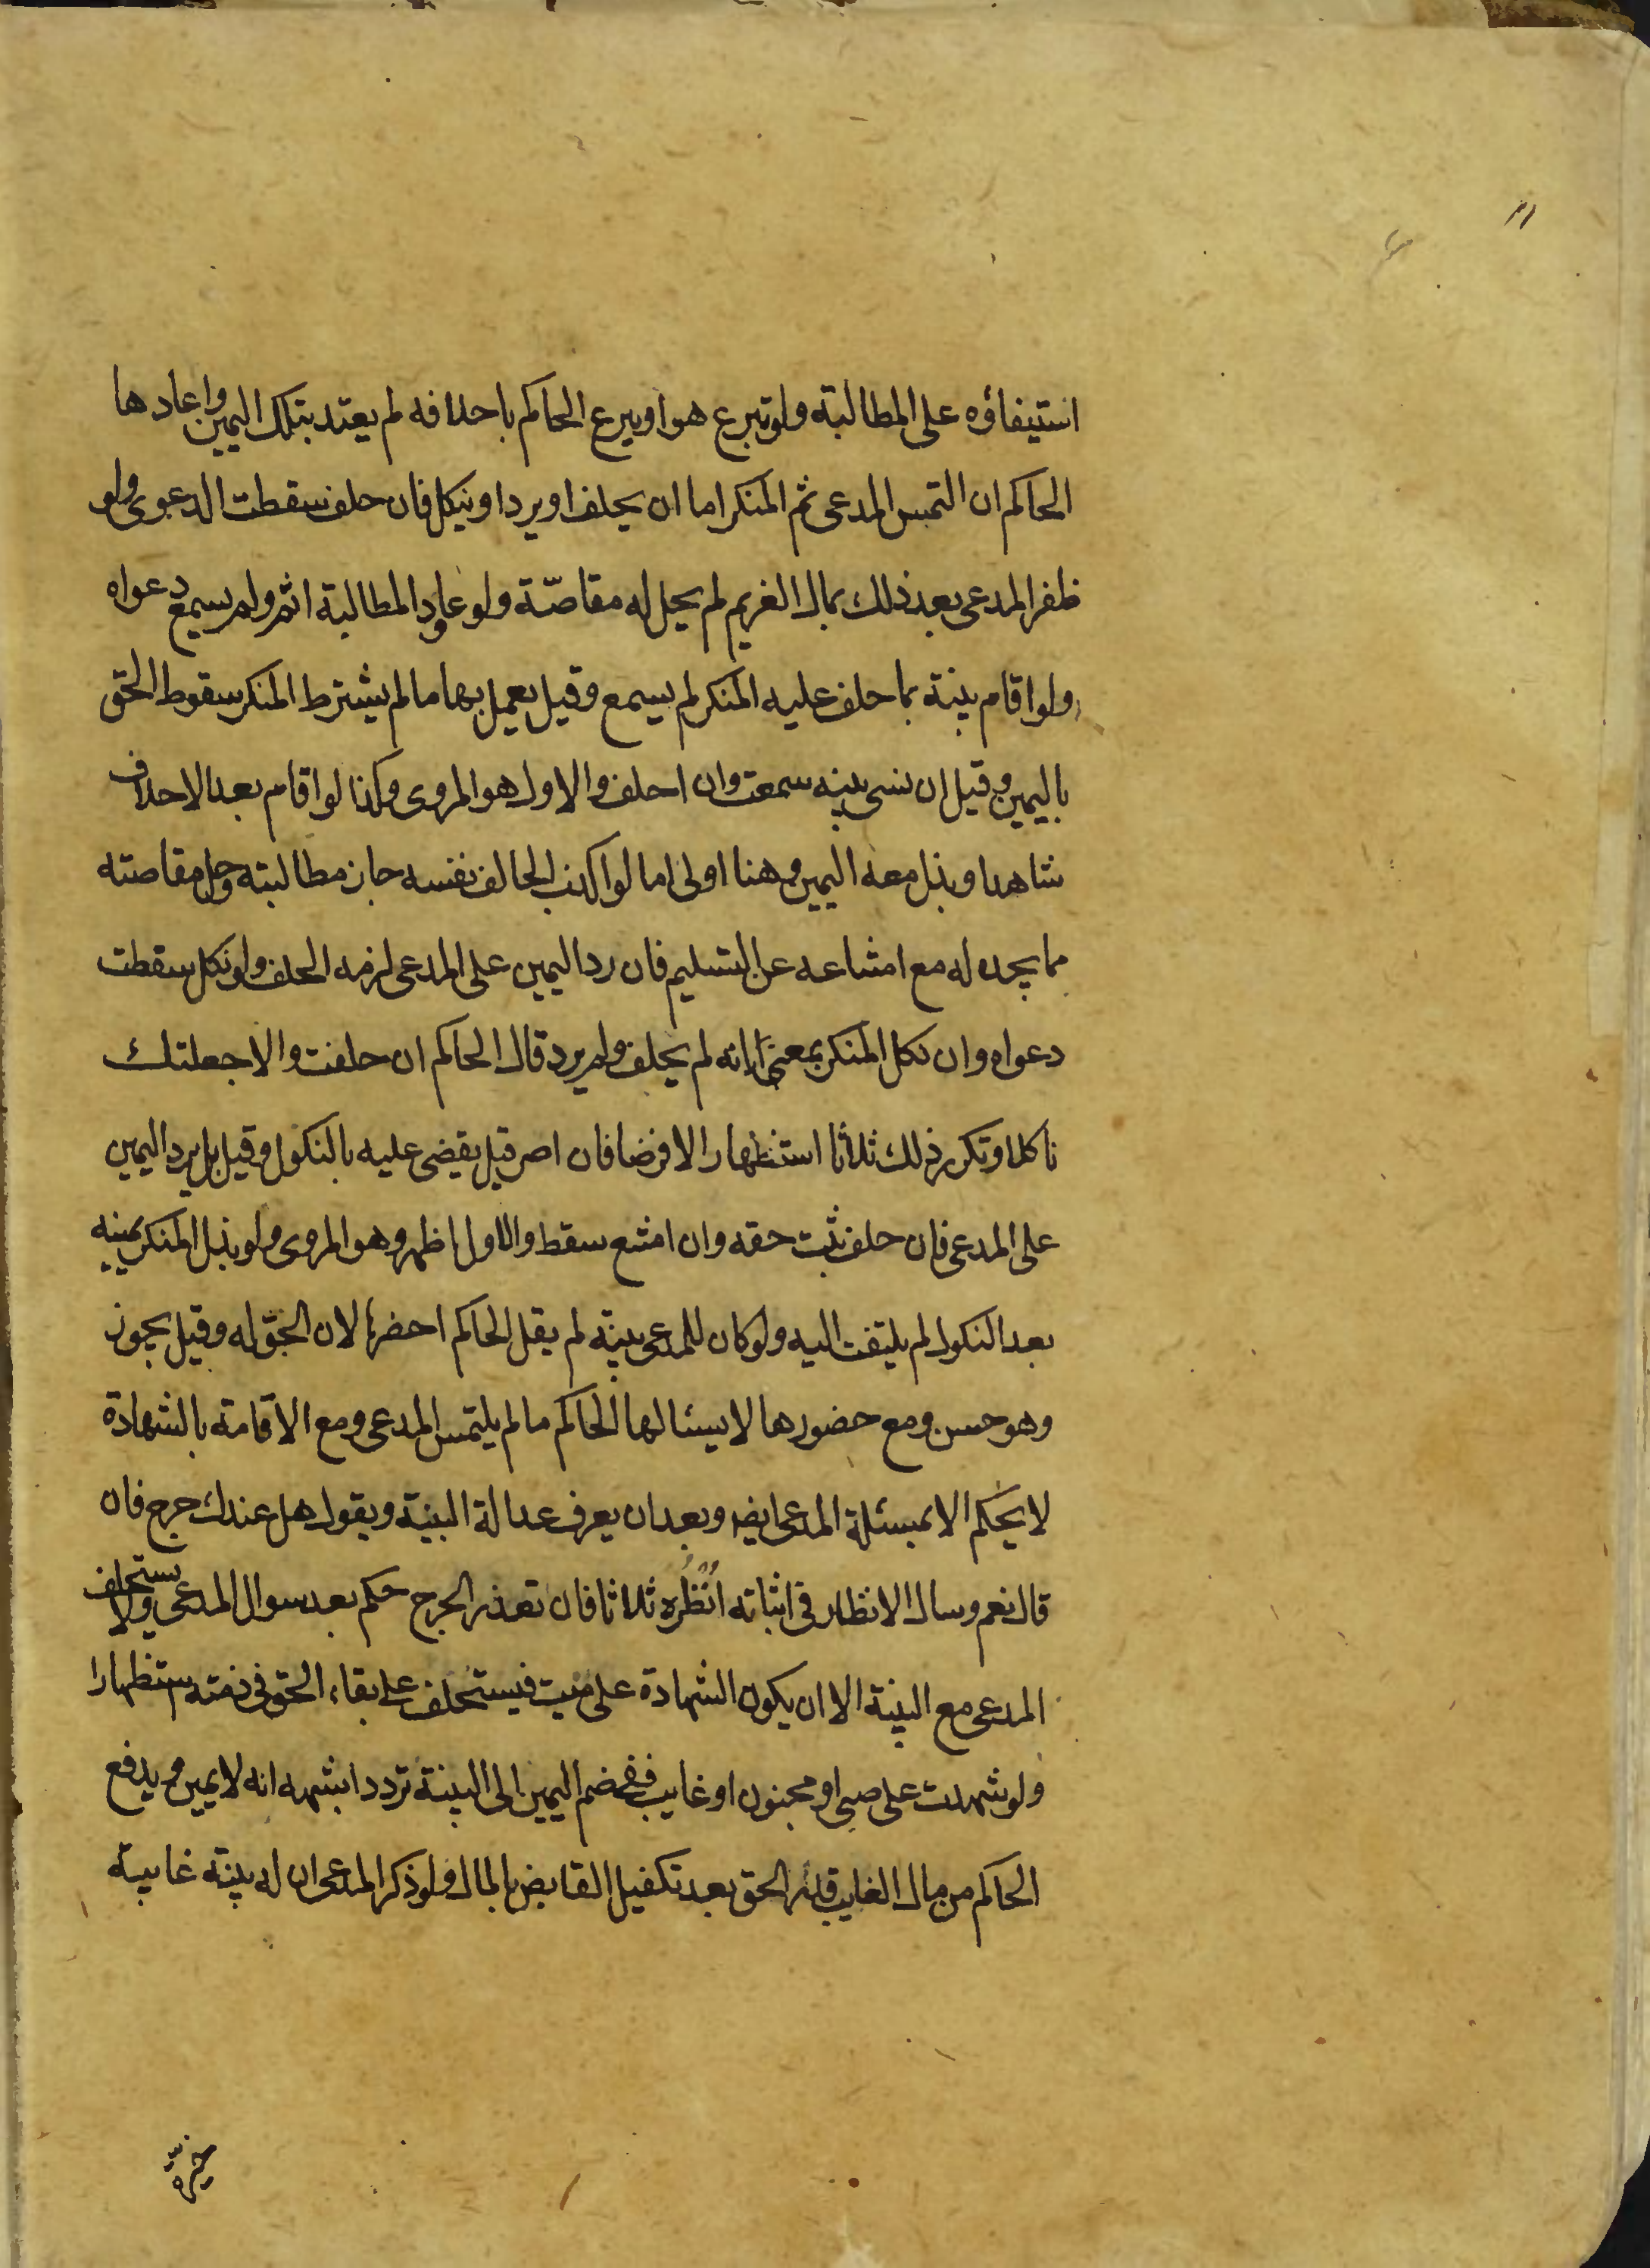 استيفاؤه على المطالبة ولو تبرع هو او تبرع الحاكم باحلافه لم يعتد بتلك اليمين واعادها
الحاكم ان التمس المدعى ثم المنكر اما ان يحلف او يرد او ينكل فان حلف سقطت الدعوى ولو
ظفر المدعى بعد ذلك بمال الغريم لم يحل له مقاصّة ولو عاود المطالبة اثم ولم يسمع دعواه
ولو اقام بينة بما حلف عليه المنكر لم يسمع وقيل يعمل بها ما لم يشترط المنكر سقوط الحق
باليمين وقيل ان نسى بينه سمعت وان احلف والاول هو المروى وكذا لو اقام بعد الاحلاف
شاهدا وبذل معه اليمين وهنا اولى اما لو اكذب الحالف نفسه جاز مطالبته وحل مقاصته
مما يجده له مع امتناعه عن التسليم فان رد اليمين على المدعى لزمه الحلف ولو نكل سقطت
دعواه وان نكل المنكر بمعنى انه لم يحلف ولم يرد قال الحاكم ان حلفت والا جعلتك
ناكلا وتكرر ذلك ثلاثا استظهارا لا فرضا فان اصر قيل يقضى عليه بالنكول وقيل بل يرد اليمين
على المدعى فان حلف ثبت حقه وان امتنع سقط والاول اظهر وهو المروى ولو بذل المنكر يمينه
بعد النكول لم يلتفت اليه ولو كان للمدعى بينة لم يقل الحاكم احضرها لان الحق له وقيل يجوز
وهو حسن ومع حضورها لا يسئالها الحاكم ما لم يلتمس المدعى ومع الاقامة بالشهادة
لا يحكم الا بمسئلة المدعى ايضا وبعد ان يعرف عدالة البينة ويقول هل عندك جرح فان
قال نعم وسال الانظار فى اثباته انظره ثلاثا فان تعذر الجرح حكم بعد سوال المدعى ولا يستحلف
المدعى مع البينة الا ان يكون الشهادة على ميت فيستحلف على بقاء الحق فى ذمته استظهارا
ولو شهدت على صبى او مجنون او غايب ففى ضم اليمين الى البينة تردد اشبهه انه لا يمين ويدفع
الحاكم من مال الغايب قدر الحق بعد تكفيل القابض بالمال ولو ذكر المدعى ان له بينة غايبة
خيره